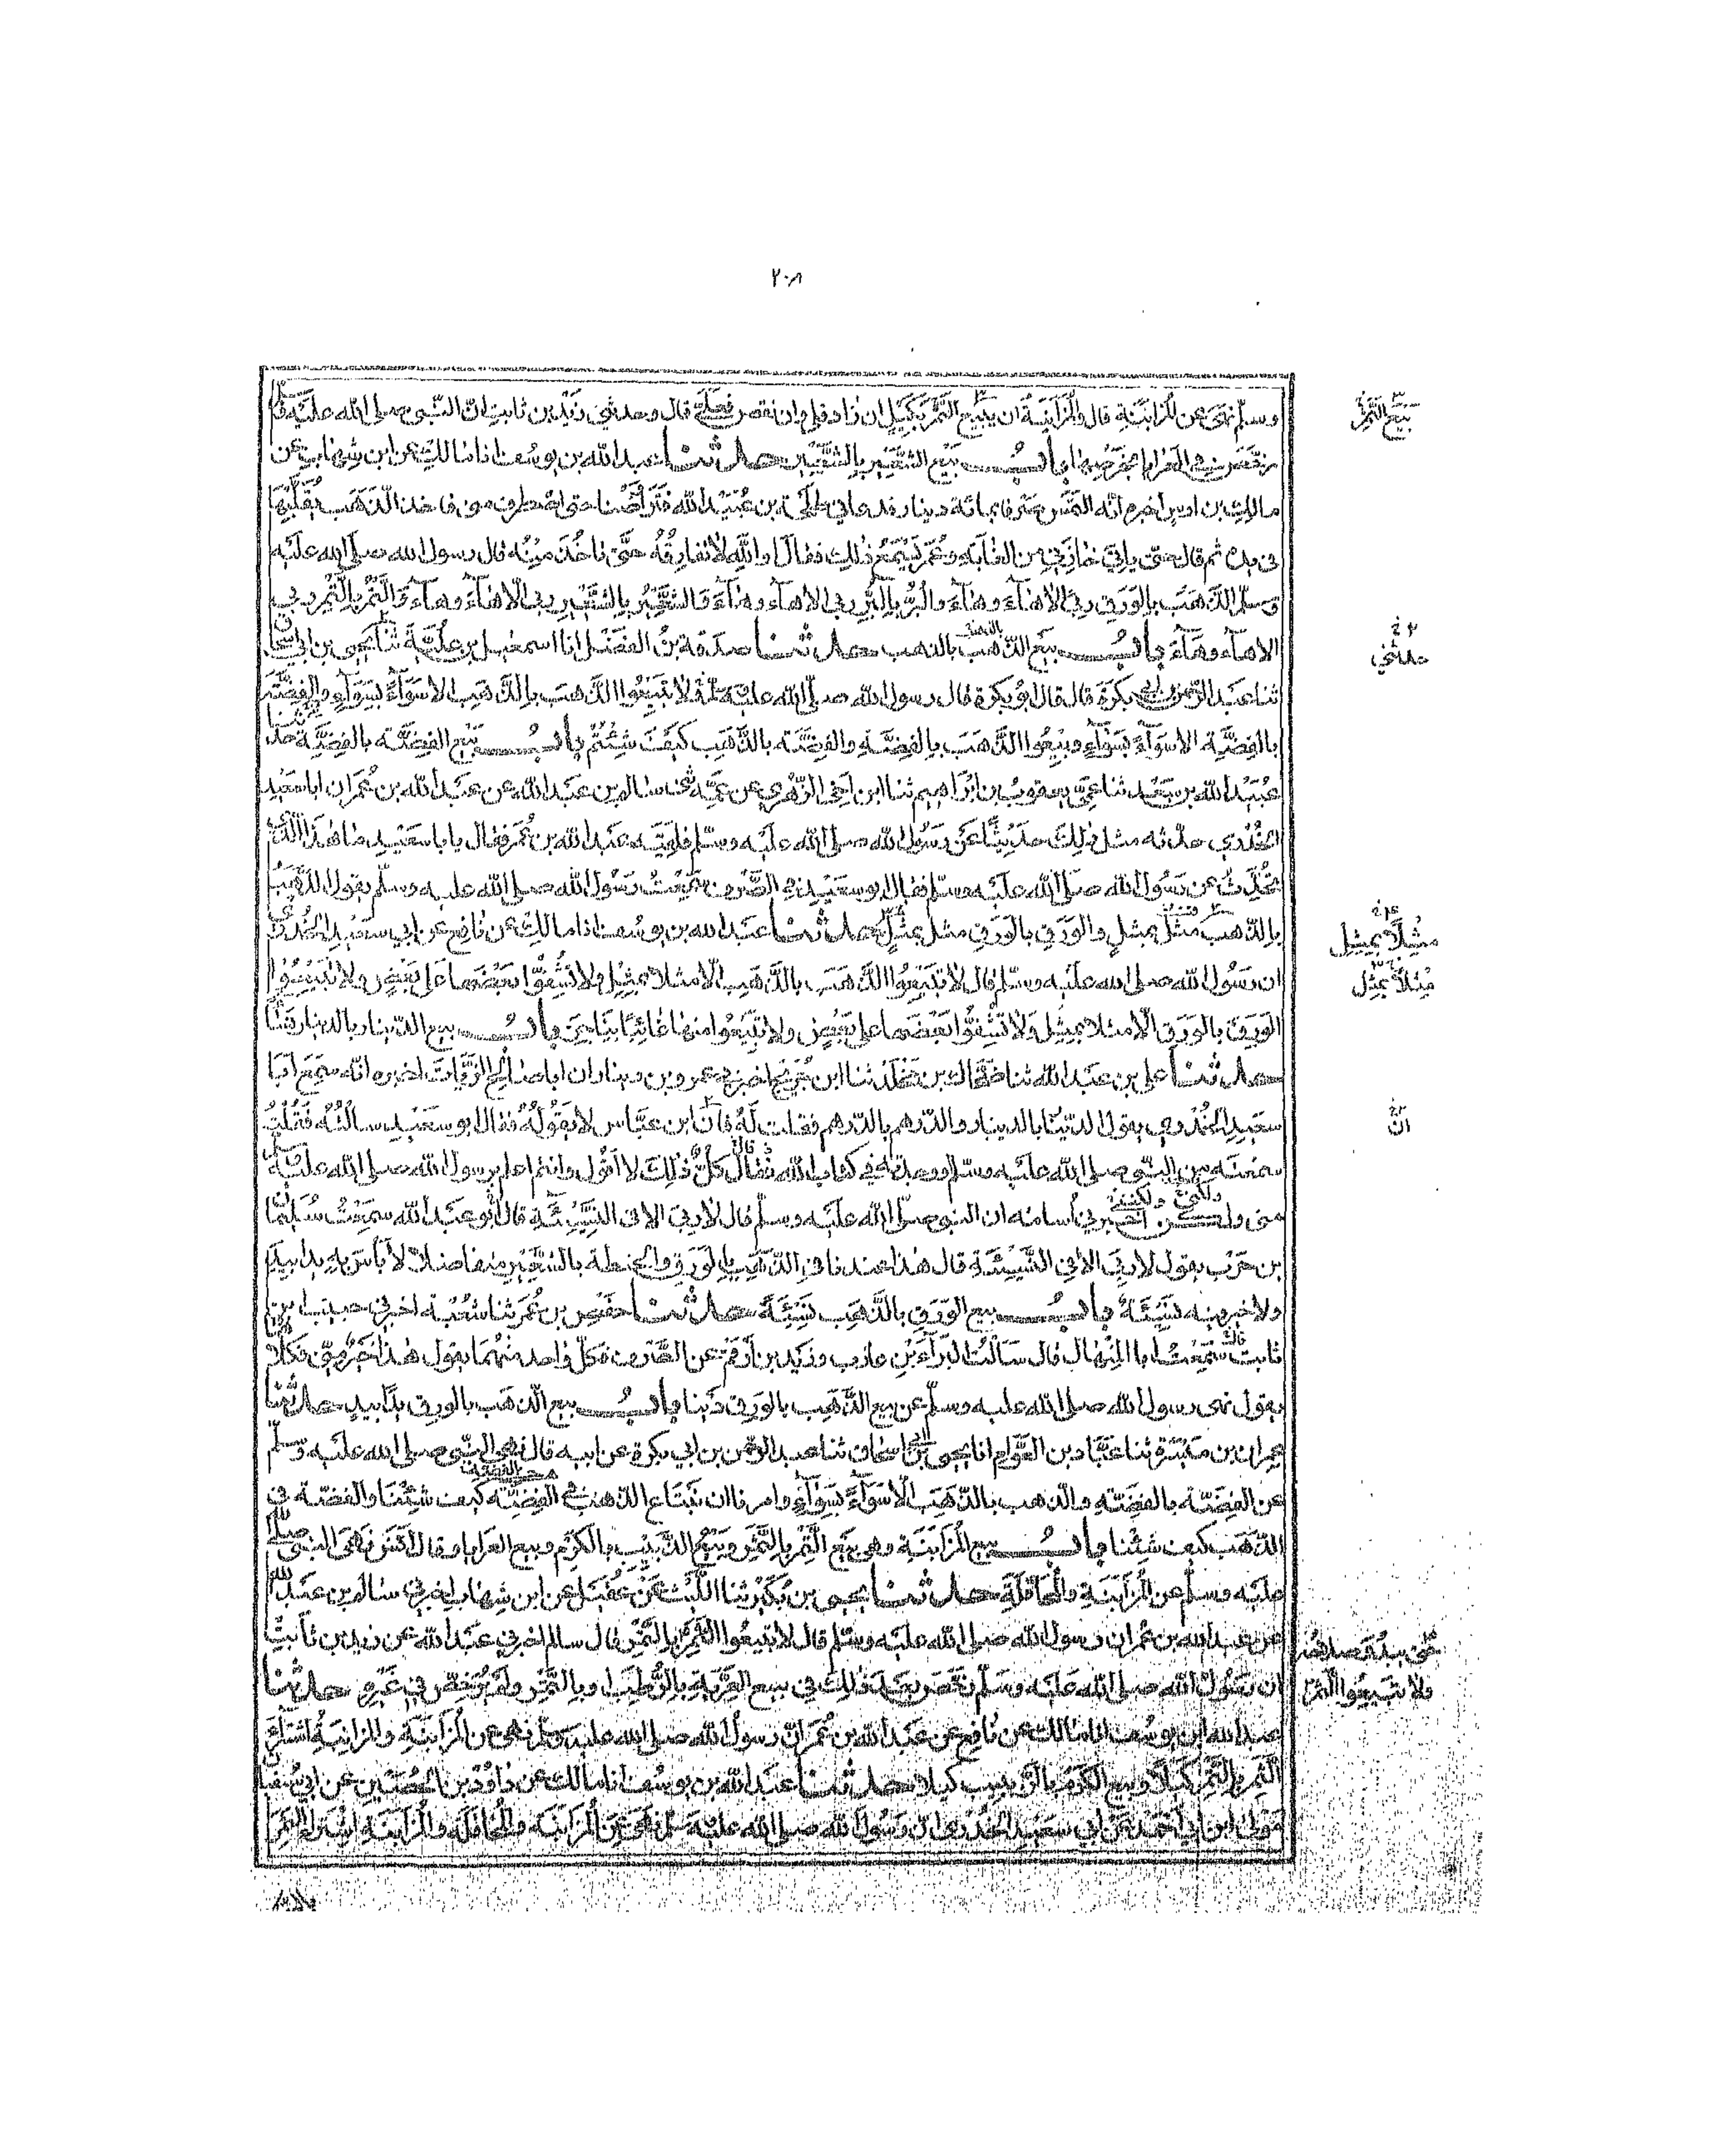 ٢٠٨
وسلم نهى عن المزابنة قال والمزابنة ان يبيع الثمر بكيل ان زاد فلي وان نقص فعلي قال وحدثني زيد بن ثابت ان النبي صلى الله عليه وسلم
بيع الثمر
رخص في العرايا بخرصها باب بيع الشعير بالشعير حدثنا عبد الله بن يوسف انا مالك عن ابن شهاب عن
مالك بن اوس اخبره انه التمس صرفا بمائة دينار فدعاني طلحة بن عبيد الله فتراوضنا حتى اصطرف مني فاخذ الذهب يقلبها
في يده ثم قال حتى ياتي خازني من الغابة وعمر يسمع ذلك فقال والله لا تفارقه حتى تاخذ منه قال رسول الله صلى الله عليه
وسلم الذهب بالورق ربى الا هاء وهاء والبر بالبر ربى الا هاء وهاء والشعير بالشعير ربى الا هاء وهاء والتمر بالتمر ربى
الا هاء وهاء باب بيع الذهب بالذهب حدثنا صدقة بن الفضل انا اسمعيل بن علية ثنا يحيى بن ابي اسحاق
حدثني
ثنا عبد الرحمن بن ابي بكرة قال قال ابو بكرة قال رسول الله صلى الله عليه وسلم لا تبيعوا الذهب بالذهب الا سواء بسواء والفضة
بالفضة الا سواء بسواء وبيعوا الذهب بالفضة والفضة بالذهب كيف شئتم باب بيع الفضة بالفضة حدثنا
عبيد الله بن سعد ثنا عمي يعقوب بن ابراهيم ثنا ابن اخي الزهري عن عمه ثني سالم بن عبد الله عن عبد الله بن عمر ان ابا سعيد
الخدري حدثه مثل ذلك حديثا عن رسول الله صلى الله عليه وسلم فلقيه عبد الله بن عمر فقال يا با سعيد ما هذا الذي
تحدث عن رسول الله صلى الله عليه وسلم فقال ابو سعيد في الصرف سمعت رسول الله صلى الله عليه وسلم يقول الذهب
بالذهب مثل بمثل والورق بالورق مثل بمثل حدثنا عبد الله بن يوسف انا مالك عن نافع عن ابي سعيد الخدري
مثلا بمثل
ان رسول الله صلى الله عليه وسلم قال لا تبيعوا الذهب بالذهب الا مثلا بمثل ولا تشفوا بعضها على بعض ولا تبيعوا
مثلا بمثل
الورق بالورق الا مثلا بمثل ولا تشفوا بعضها على بعض ولا تبيعوا منها غائبا بناجز باب بيع الدينار بالدينار نسا
حدثنا علي بن عبد الله ثنا ضحاك بن مخلد ثنا ابن جريج اخبرني عمرو بن دينار ان ابا صالح الزيات اخبره انه سمع ابا
سعيد الخدري يقول الدينار بالدينار والدرهم بالدرهم فقلت له فان ابن عباس لا يقوله فقال ابو سعيد سالته فقلت
ان
سمعته من النبي صلى الله عليه وسلم او وجدته في كتاب الله فقال كل ذلك لا اقول وانتم اعلم برسول الله صلى الله عليه وسلم
مني ولكن اخبرني أسامة ان النبي صلى الله عليه وسلم قال لا ربى الا في النسيئة قال ابو عبد الله سمعت سليمان
بن حرب يقول لا ربى الا في النسيئة قال هذا عندنا في الذهب بالورق والحنطة بالشعير متفاضلا لا بأس به يدا بيد
ولا خير فيه نسيئة باب بيع الورق بالذهب نسيئة حدثنا حفص بن عمر ثنا شعبة اخبرني حبيب بن
ثابت قال سمعت ابا المنهال قال سالت البراء بن عازب وزيد بن أرقم عن الصرف فكل واحد منهما يقول هذا خير مني فكلاهما
يقول نهى رسول الله صلى الله عليه وسلم عن بيع الذهب بالورق دينا باب بيع الذهب بالورق يدا بيد حدثنا
عمران بن ميسرة ثنا عباد بن العوام انا يحيى بن ابي اسحاق ثنا عبد الرحمن بن ابي بكرة عن ابيه قال نهى النبي صلى الله عليه وسلم
عن الفضة بالفضة والذهب بالذهب الا سواء بسواء وامرنا ان نبتاع الذهب في الفضة كيف شئنا والفضة في
الذهب كيف شئنا باب بيع المزابنة وهي بيع الثمر بالتمر وبيع الزبيب بالكرم وبيع العرايا وقال انس نهى النبي صلى الله
عليه وسلم عن المزابنة والمحاقلة حدثنا يحيى بن بكير ثنا الليث عن عقيل عن ابن شهاب اخبرني سالم بن عبد الله
عن عبد الله بن عمر ان رسول الله صلى الله عليه وسلم قال لا تبيعوا الثمر بالتمر قال سالم اخبرني عبد الله عن زيد بن ثابت
ان رسول الله صلى الله عليه وسلم رخص بعد ذلك في بيع العرية بالرطب او بالتمر ولم يرخص في غيره حدثنا
ولا تبيعوا الثمر
عبد الله بن يوسف انا مالك عن نافع عن عبد الله بن عمر ان رسول الله صلى الله عليه وسلم نهى عن المزابنة والمزابنة اشتراء
الثمر بالتمر كيلا وبيع الكرم بالزبيب كيلا حدثنا عبد الله بن يوسف انا مالك عن داود بن الحصين عن ابي سفيان
مولى ابن ابي احمد عن ابي سعيد الخدري ان رسول الله صلى الله عليه وسلم نهى عن المزابنة والمحاقلة والمزابنة اشتراء الثمر